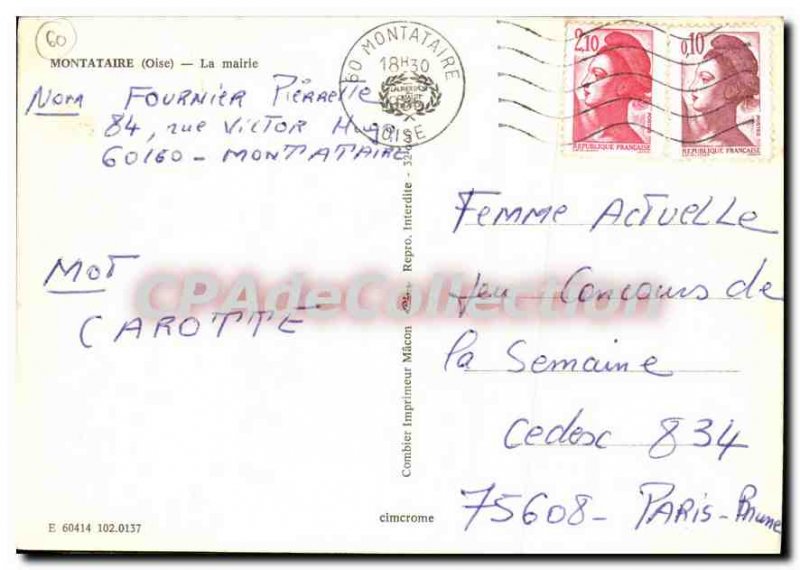 60
MONTATAIRE (Oise) — La mairie
Nom FOURNIER Pierrette
84, rue VICTOR Hugo
60160 - MONTATAIRE
MOT
CAROTTE
E 60414 102.0137
60 MONTATAIRE
18H30
OISE
Combier Imprimeur Mâcon
Repro. Interdite -
cimcrome
2,10
POSTES
REPUBLIQUE FRANÇAISE
0,10
POSTES
REPUBLIQUE FRANÇAISE
Femme Actuelle
Jeu Concours de
la Semaine
Cedex 834
75608 - PARIS - Brune
CPAdeCollection